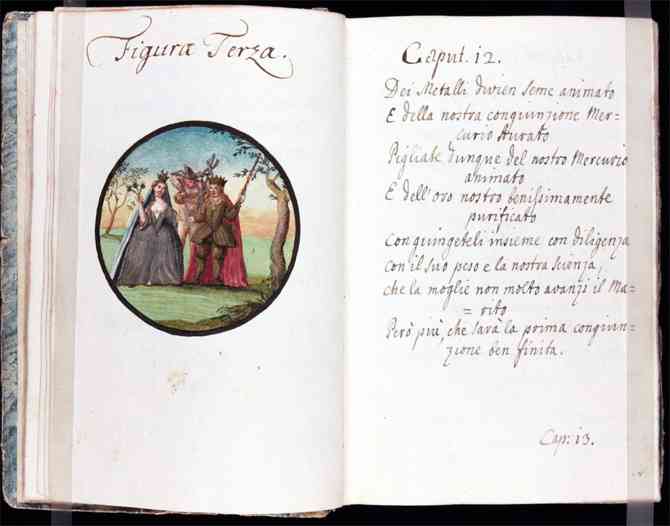 Figura Terza.
Caput. 12.
Dei Metalli divien seme animato
E della nostra congiunzione Mer=
curio Aurato
Pigliate dunque del nostro Mercurio
animato
E dell'oro nostro benissimamente
purificato
Congiungeteli insieme con diligenza
con il suo peso e la nostra scienza,
che la moglie non molto avanzi il Ma=
= rito
Però più, che sarà la prima congiun=
zione ben finita.
Cap: 13.